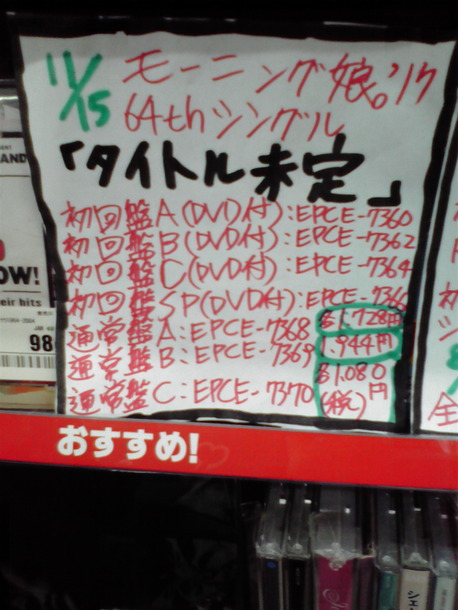 11/15 モーニング娘。'17
64thシングル
「タイトル未定」
初回盤A(DVD付):EPCE-7360
初回盤B(DVD付):EPCE-7362
初回盤C(DVD付):EPCE-7364
初回盤SP(DVD付):EPCE-7366
各1,728円
通常盤A:EPCE-7368
1,944円
通常盤B:EPCE-7369
各1,080円
通常盤C:EPCE-7370
(税込)
おすすめ!
AND
OW!
eir hits
98
全